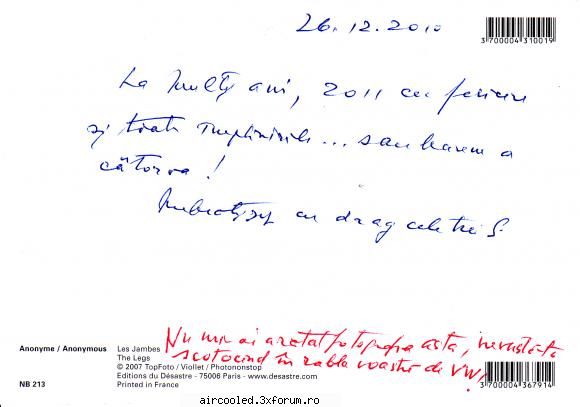 26.12.2010
3 700004 310019
La mulţi ani, 2011 cu fericire
şi toate împlinirile... sau harem a
câtorva!
cu drag cele trei S.
Nu mi-ai arătat fotografia asta, nevastă-ta
scotocind în rabla voastră de VW!
Anonyme / Anonymous
Les Jambes
The Legs
© 2007 TopFoto / Viollet / Photononstop
Editions du Désastre - 75006 Paris - www.desastre.com
NB 213
Printed in France
3 700004 367914
aircooled.3xforum.ro